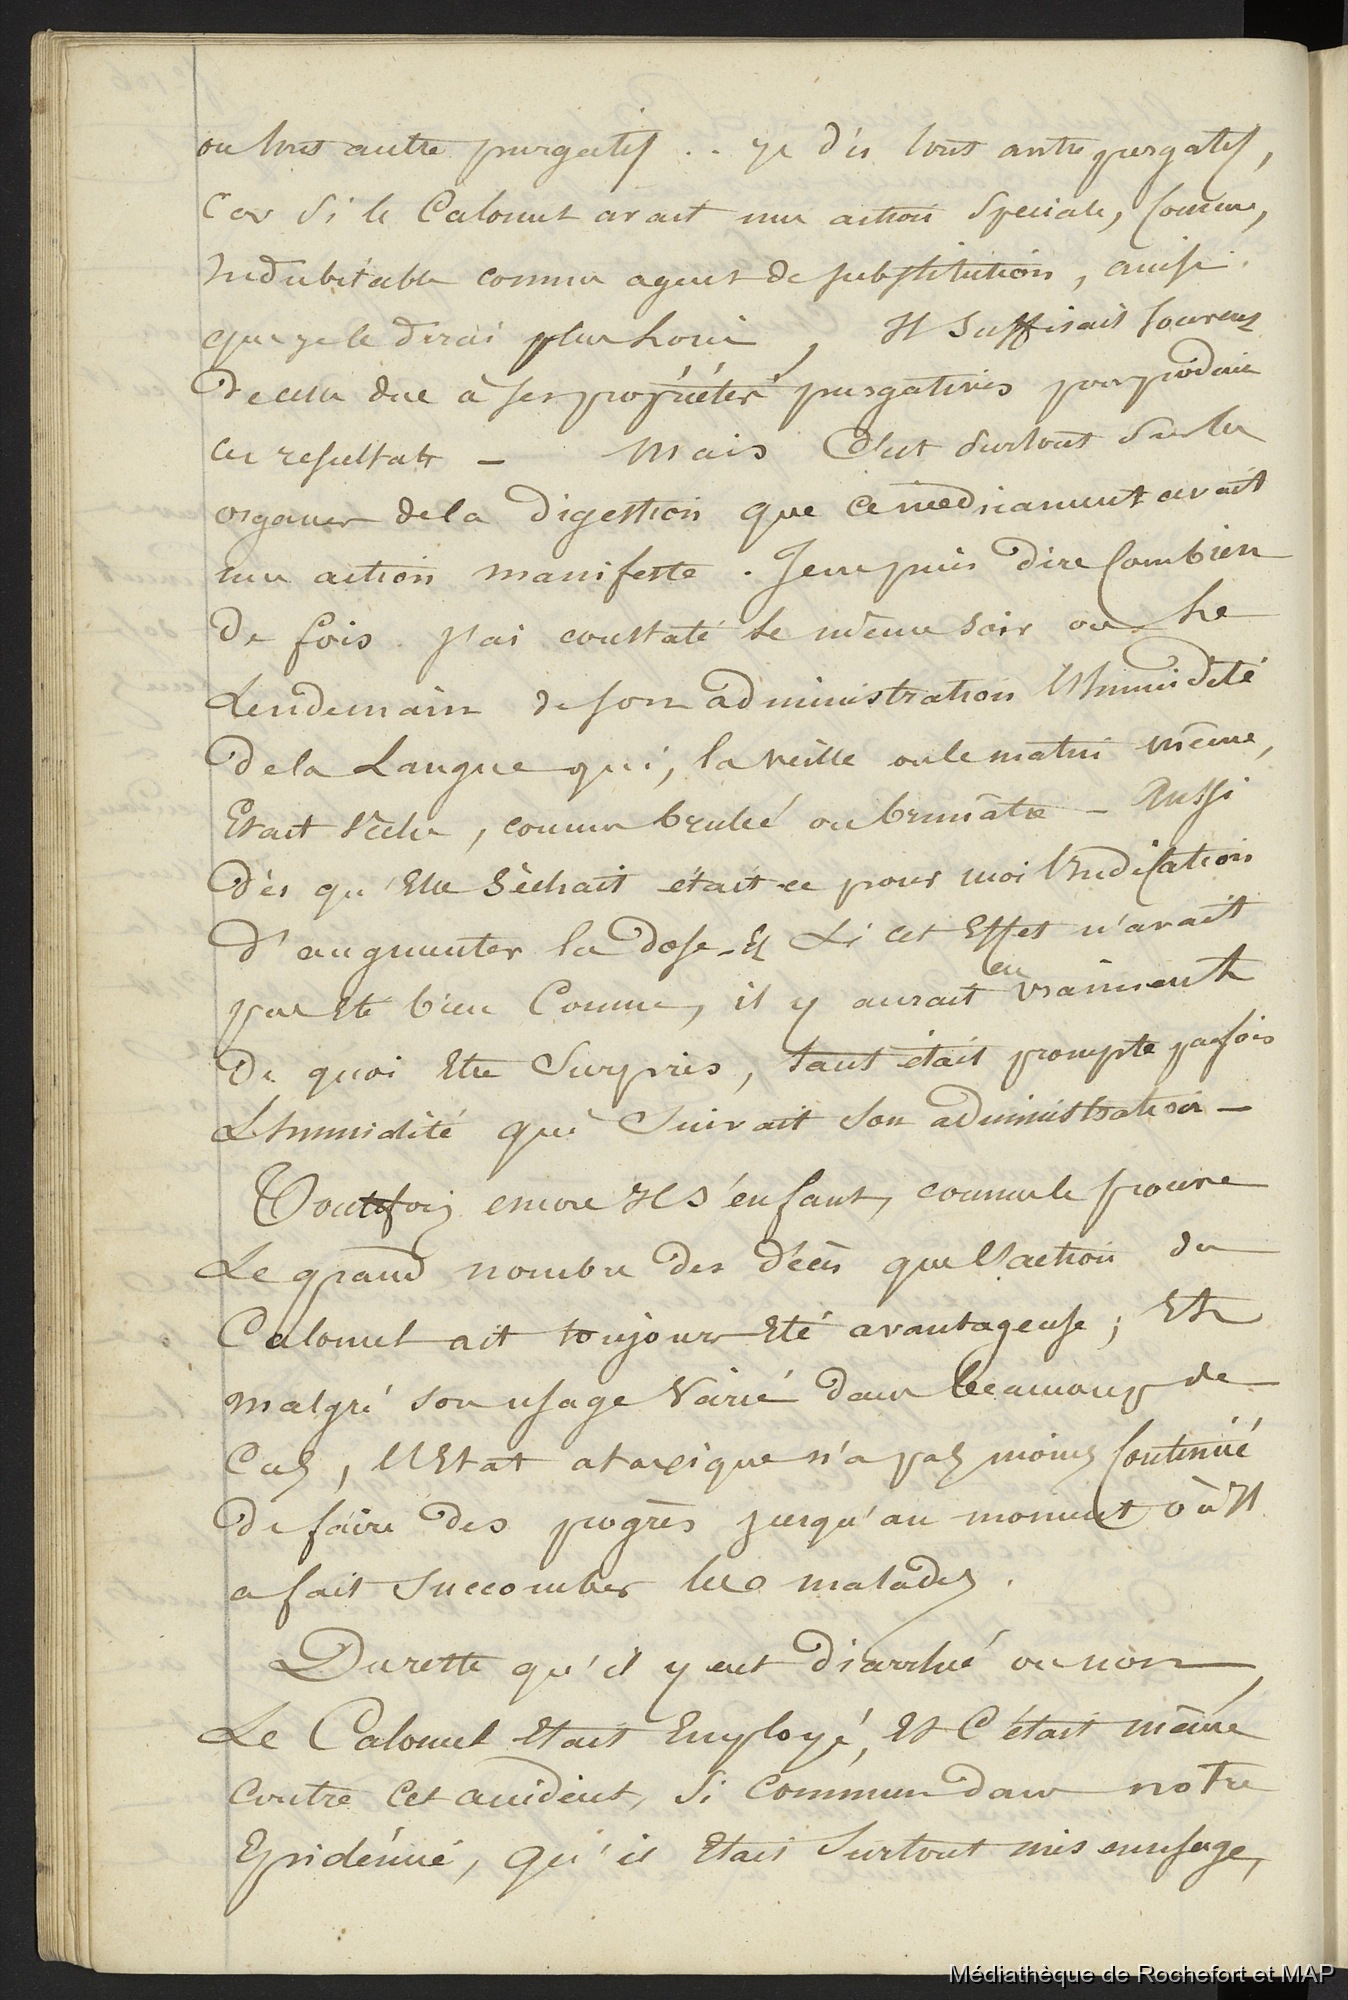 ou tout autre purgatif .. je dis tout autre purgatif,
Car Si le Calomel avait une action Speciale, Connue,
Indubitable comme agent de substitution, ainsi
que je le dirai plus Loin, Il Suffisait Souvent
De celle due à ses propriétés purgatives pour produire
ces resultats – Mais C'est Surtout Sur les
organes de la Digestion que ce médicament avait
une action manifeste. Je ne puis Dire Combien
De fois j'ai constaté le même soir ou Le
Lendemain de son administration l'humidité
De la Langue qui, la veille ou le matin même,
Etait Sèche, comme brulée ou brunâtre – Aussi
Dès qu'Elle Sèchait était-ce pour moi l'Indication
D'augmenter la Dose – Et Si cet Effet n'avait
pas Eté bien Connu, il y aurait eu vraiment
De quoi Etre Surpris, tant était prompte parfois
L'humidité qui Suivait Son administration –
Toutefois encore Il S'en faut, comme le prouve
Le grand nombre des Décès que l'action du
Calomel ait toujours Eté avantageuse; Et
malgré son usage Varié Dans beaucoup de
Cas, l'Etat ataxique n'a pas moins Continué
De faire Des progrès jusqu'au moment où Il
a fait Succomber les malades.
Du reste qu'il y eut Diarrhée ou non,
Le Calomel Etait Employé, Et C'était même
contre cet accident, Si commun Dans notre
Epidémie, qu'il Etait Surtout mis en usage,
Médiathèque de Rochefort et MAP